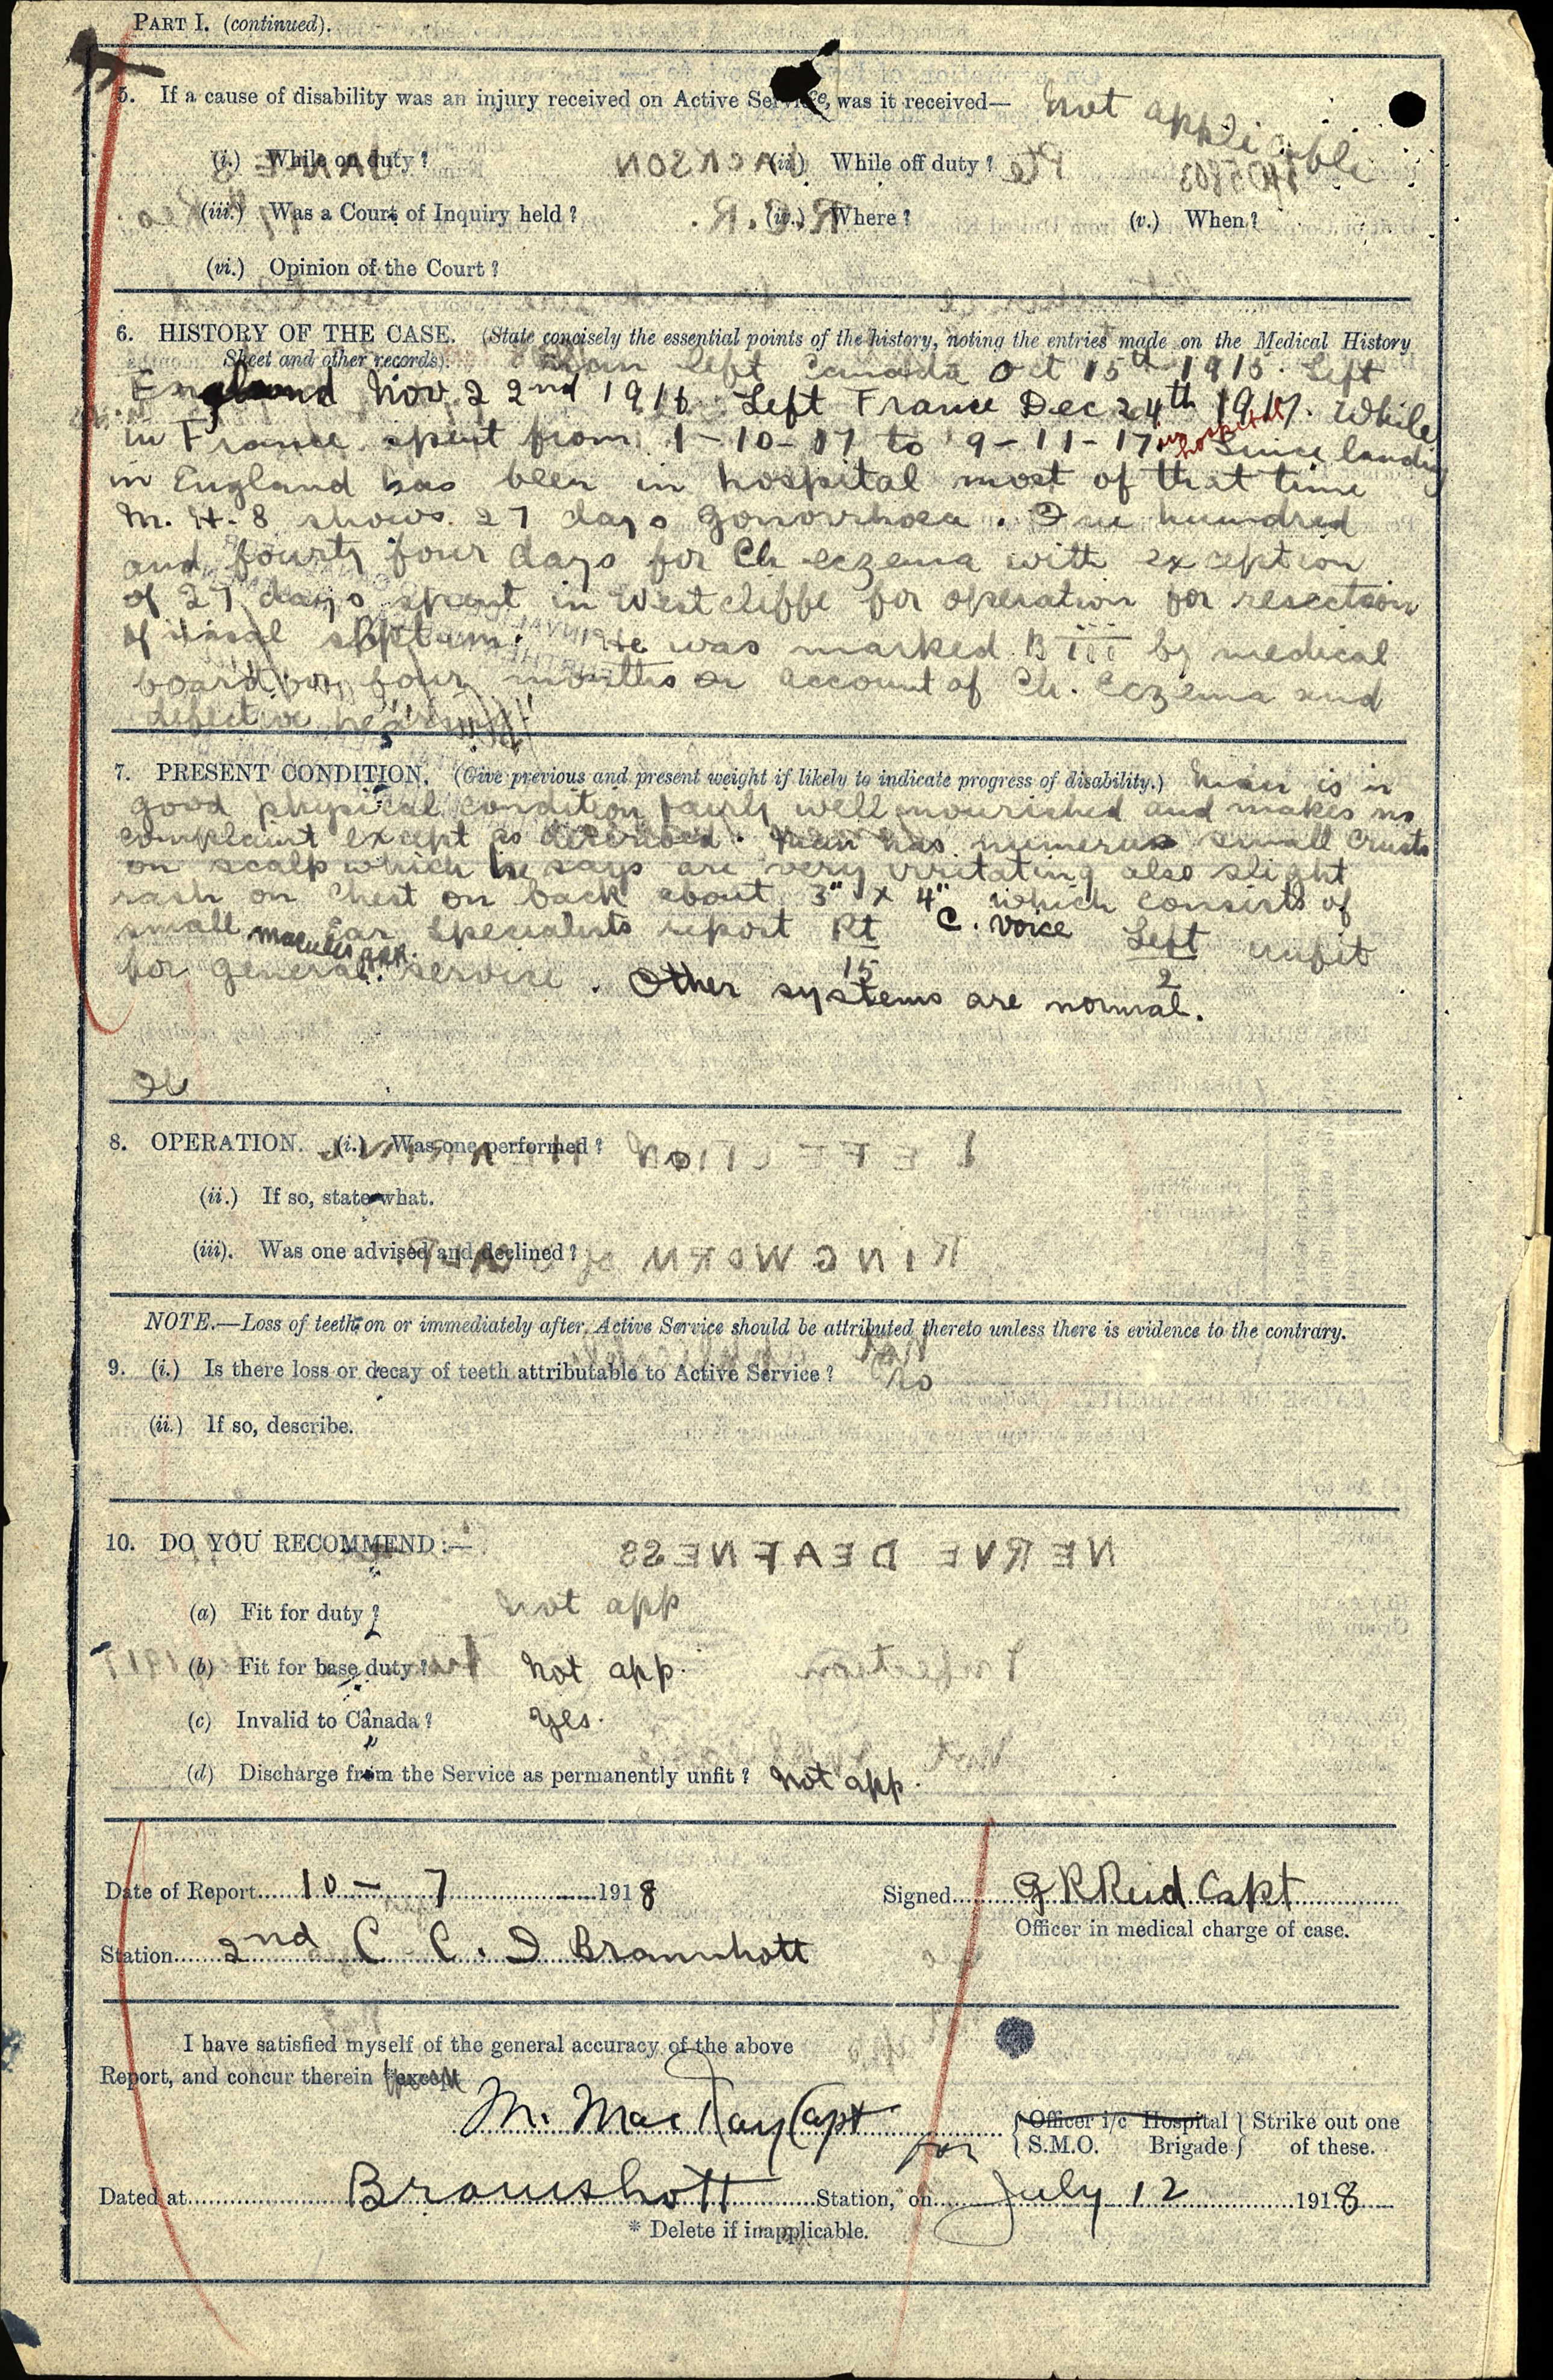 PART I. (continued).
5. If a cause of disability was an injury received on Active Service, was it received— Not applicable
(i.) While on duty? (ii.) While off duty?
(iii.) Was a Court of Inquiry held? (iv.) Where? (v.) When?
(vi.) Opinion of the Court?
6. HISTORY OF THE CASE. (State concisely the essential points of the history, noting the entries made on the Medical History
Sheet and other records). Man left Canada Oct 15th 1915. Left
England Nov. 22nd 1916. Left France Dec 24th 1917. While
in France spent from 1-10-17 to 9-11-17 in hospital Since landing
in England has been in hospital most of that time
M. H. 8 shows 27 days Gonorrhoea. One hundred
and fourty four days for Ch eczema with exception
of 27 days spent in Westcliffe for operation for resection
of nasal septum. He was marked B iii by medical
board for four months on account of Ch. Eczema and
defective hearing
7. PRESENT CONDITION. (Give previous and present weight if likely to indicate progress of disability.) Man is in
good physical condition fairly well nourished and makes no
complaint except as described. Man has numerus small crusts
on scalp which he says are very irritating also slight
rash on chest on back about 3" x 4" which consists of
small macules Ear Specialists report Rt C. voice Left unfit
15 2
for general service. Other systems are normal.
8. OPERATION. (i.) Was one performed?
(ii.) If so, state what.
(iii). Was one advised and declined?
NOTE.—Loss of teeth on or immediately after Active Service should be attributed thereto unless there is evidence to the contrary.
9. (i.) Is there loss or decay of teeth attributable to Active Service? No
(ii.) If so, describe.
10. DO YOU RECOMMEND:—
(a) Fit for duty? Not app
(b) Fit for base duty? Not app.
(c) Invalid to Canada? Yes.
(d) Discharge from the Service as permanently unfit? Not app.
Date of Report 10 - 7 1918 Signed G R Reid Capt
Officer in medical charge of case.
Station 2nd C. C. D Bramshott
I have satisfied myself of the general accuracy of the above
Report, and concur therein *except
M. MacKay Capt
for { Officer i/c Hospital } Strike out one
{ S.M.O. Brigade } of these.
Dated at Bramshott Station, on July 12 1918
* Delete if inapplicable.